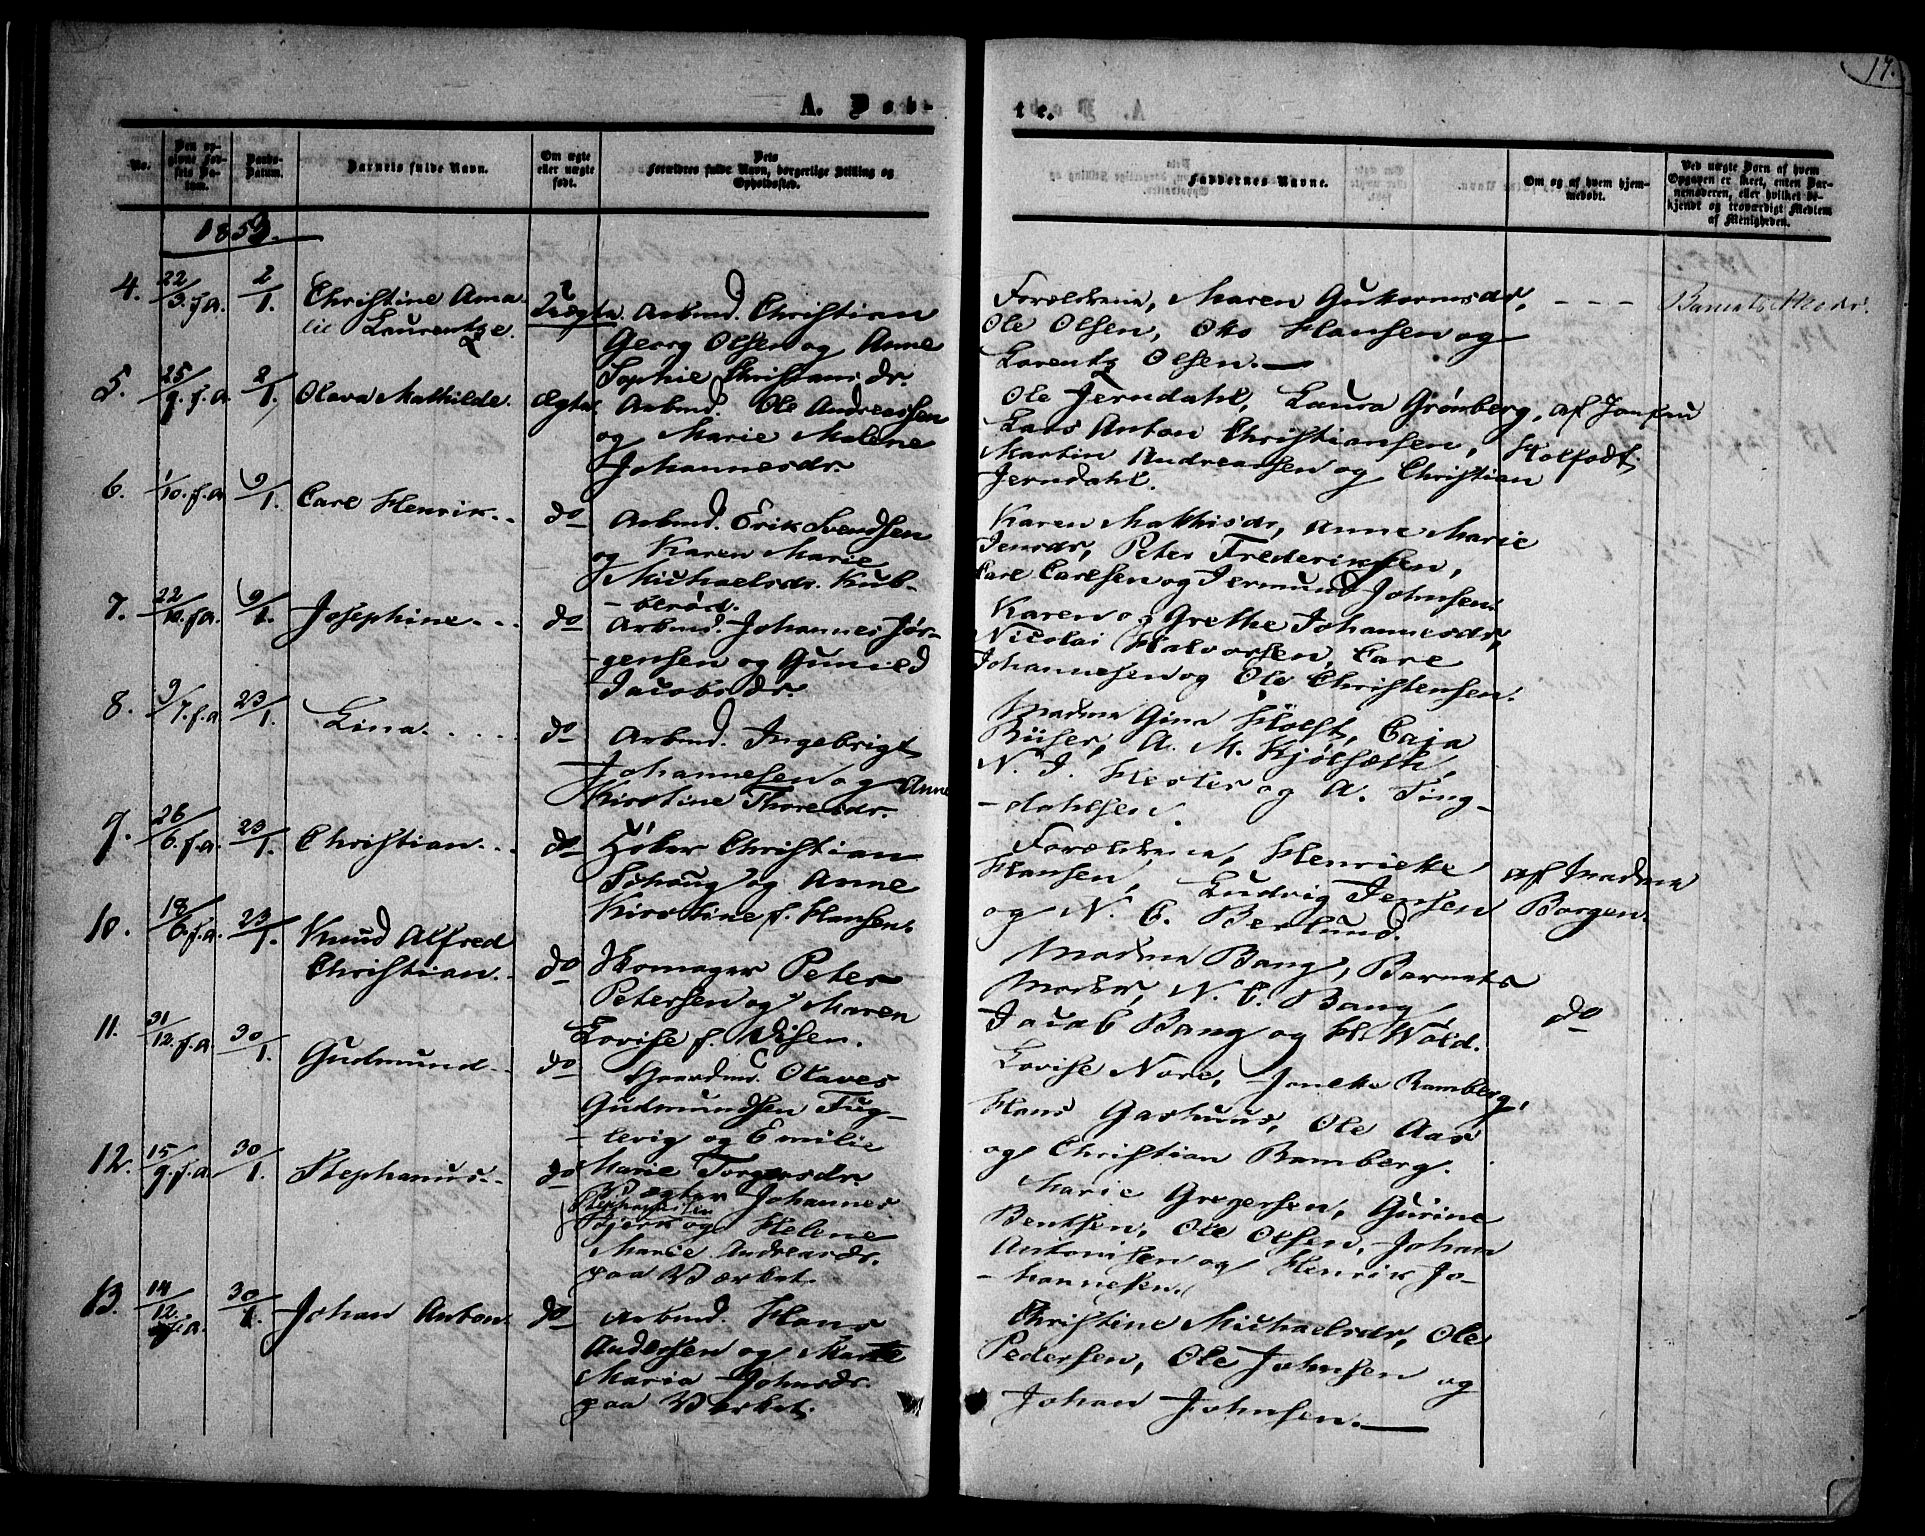 17.
A. Døb-
te.
No.
Den opgivne Fødsels Datum.
Daabs-Datum.
Barnets fulde Navn.
Om ægte eller uægte født.
Dets Forældres fulde Navn, borgerlige Stilling og Opholdssted.
Faddernes Navne.
Om og af hvem hjemmedøbt.
Ved uægte Børn af hvem Opgaven er skeet, enten Barnemoderen, eller hvilket bekjendt og troværdigt Medlem af Menigheden.
1853.
4. 22/3. f.a. 2/1. Christine Ama-
lie Laurentze.
Uægte
Arbmd. Christian
Georg Olsen og Anne
Sophie Christiansdr.
Forældrene, Maren Guttormsdr,
Ole Olsen, Otto Hansen og
Lorentz Olsen.
- - -
Barnets Moder.
5. 25/9. f.a. 2/1. Olava Mathilde.
ægte
Arbmd. Ole Andreassen
og Marie Malene
Johannesdr.
Ole Jerndahl, Laura Grønberg,
Lars Anton Christiansen,
Martin Andreassen og Christian
Jerndahl.
af Jomfru
Holfodt
6. 1/10. f.a. 9/1. Carl Henrik.
do
Arbmd. Erik Svendsen
og Karen Marie
Michaelsdr. Kub-
berød.
Karen Mathisdr, Anne Marie
Jensdr, Peter Frederiksen,
Carl Carlsen og Jermund Johnsen.
7. 22/10. f.a. 9/1. Josephine
do
Arbmd. Johannes Jør-
gensen og Gunild
Jacobsdr.
Karen og Grethe Johannesdr,
Nicolai Halvorsen, Carl
Johannesen og Ole Christensen.
8. 9/7. f.a. 23/1. Lina.
do
Arbmd. Ingebrigt
Johannesen og Anne
Kirstine Thoresdr.
Madme Gina Holst, Caja
Riiser, A. M. Kjølseth,
N. J. Hesler og A. Ting-
dahlsen.
9. 26/6. f.a. 23/1. Christian
do
Høker Christian
Schaug og Anne
Kirstine f. Hansen.
Forældrene, Henriette
Hansen, Ludvig Jensen
og N. C. Berlund.
af Madme
Borgen.
10. 18/6. f.a. 23/1. Knud Alfred
Christian.
do
Skomager Peter
Petersen og Maren
Lovise f. Olsen.
Madme Bang, Barnets
Moder, N. C. Bang,
Jacob Bang og H. Wold.
do
11. 31/12. f.a. 30/1. Gudmund
do
Gaardmd. Olaves
Gudmundsen Fug-
levig og Emilie
Marie Torgersdr.
Lovise Nore, Jonette Ramberg,
Hans Gashuus, Ole Aas
og Christian Ramberg.
12. 15/9. f.a. 30/1. Stephanus
do
Vægter Johannes
Stephansen
og Helene
Marie Andreasdr.
paa Værket.
Marie Gregersen, Gurine
Bentsen, Ole Olsen, Johan
Antonisen og Henrik Jo-
hannesen.
13. 14/12. f.a. 30/1. Johan Anton
do
Arbmd. Hans
Andersen og Marte
Maria Johnsdr.
paa Værket.
Christine Michaelsdr, Ole
Pedersen, Ole Johnsen og
Johan Johnsen.